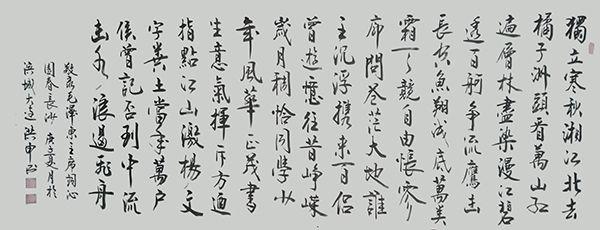 獨立寒秋湘江北去
橘子洲頭看萬山红
遍層林盡染漫江碧
透百舸争流鷹击
長空魚翔浅底萬类
霜天競自由悵寥
廓問苍茫大地誰
主沉浮携来百侣
曾遊憶往昔峥嵘
歲月稠恰同學少
年風華正茂書
生意氣揮斥方遒
指點江山激揚文
字粪土當年萬户
侯曾記否到中流
击水浪遏飛舟
敬录毛澤東主席詞沁
園春長沙庚子夏月於
滨城大连洪申书